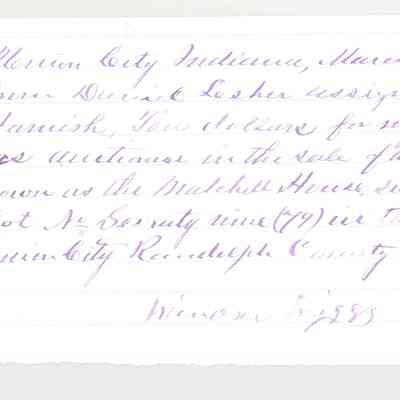 Union City Indiana, Marc
from Daniel Lesher assign
Hamish, Ten dollars for m
as auctioneer in the sale of th
nown as the Matchell House, si
lot No Seventy nine (79) in th
nion City Randolph County
Winosr Wiggs